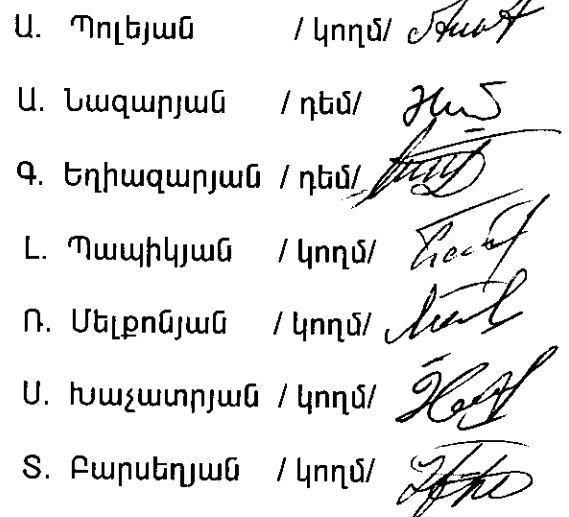 Ա. Պոլեյան / կողմ/
Ա. Նազարյան / դեմ/
Գ. Եղիազարյան / դեմ/
Լ. Պապիկյան / կողմ/
Ռ. Մելքոնյան / կողմ/
Ս. Խաչատրյան / կողմ/
Տ. Բարսեղյան / կողմ/